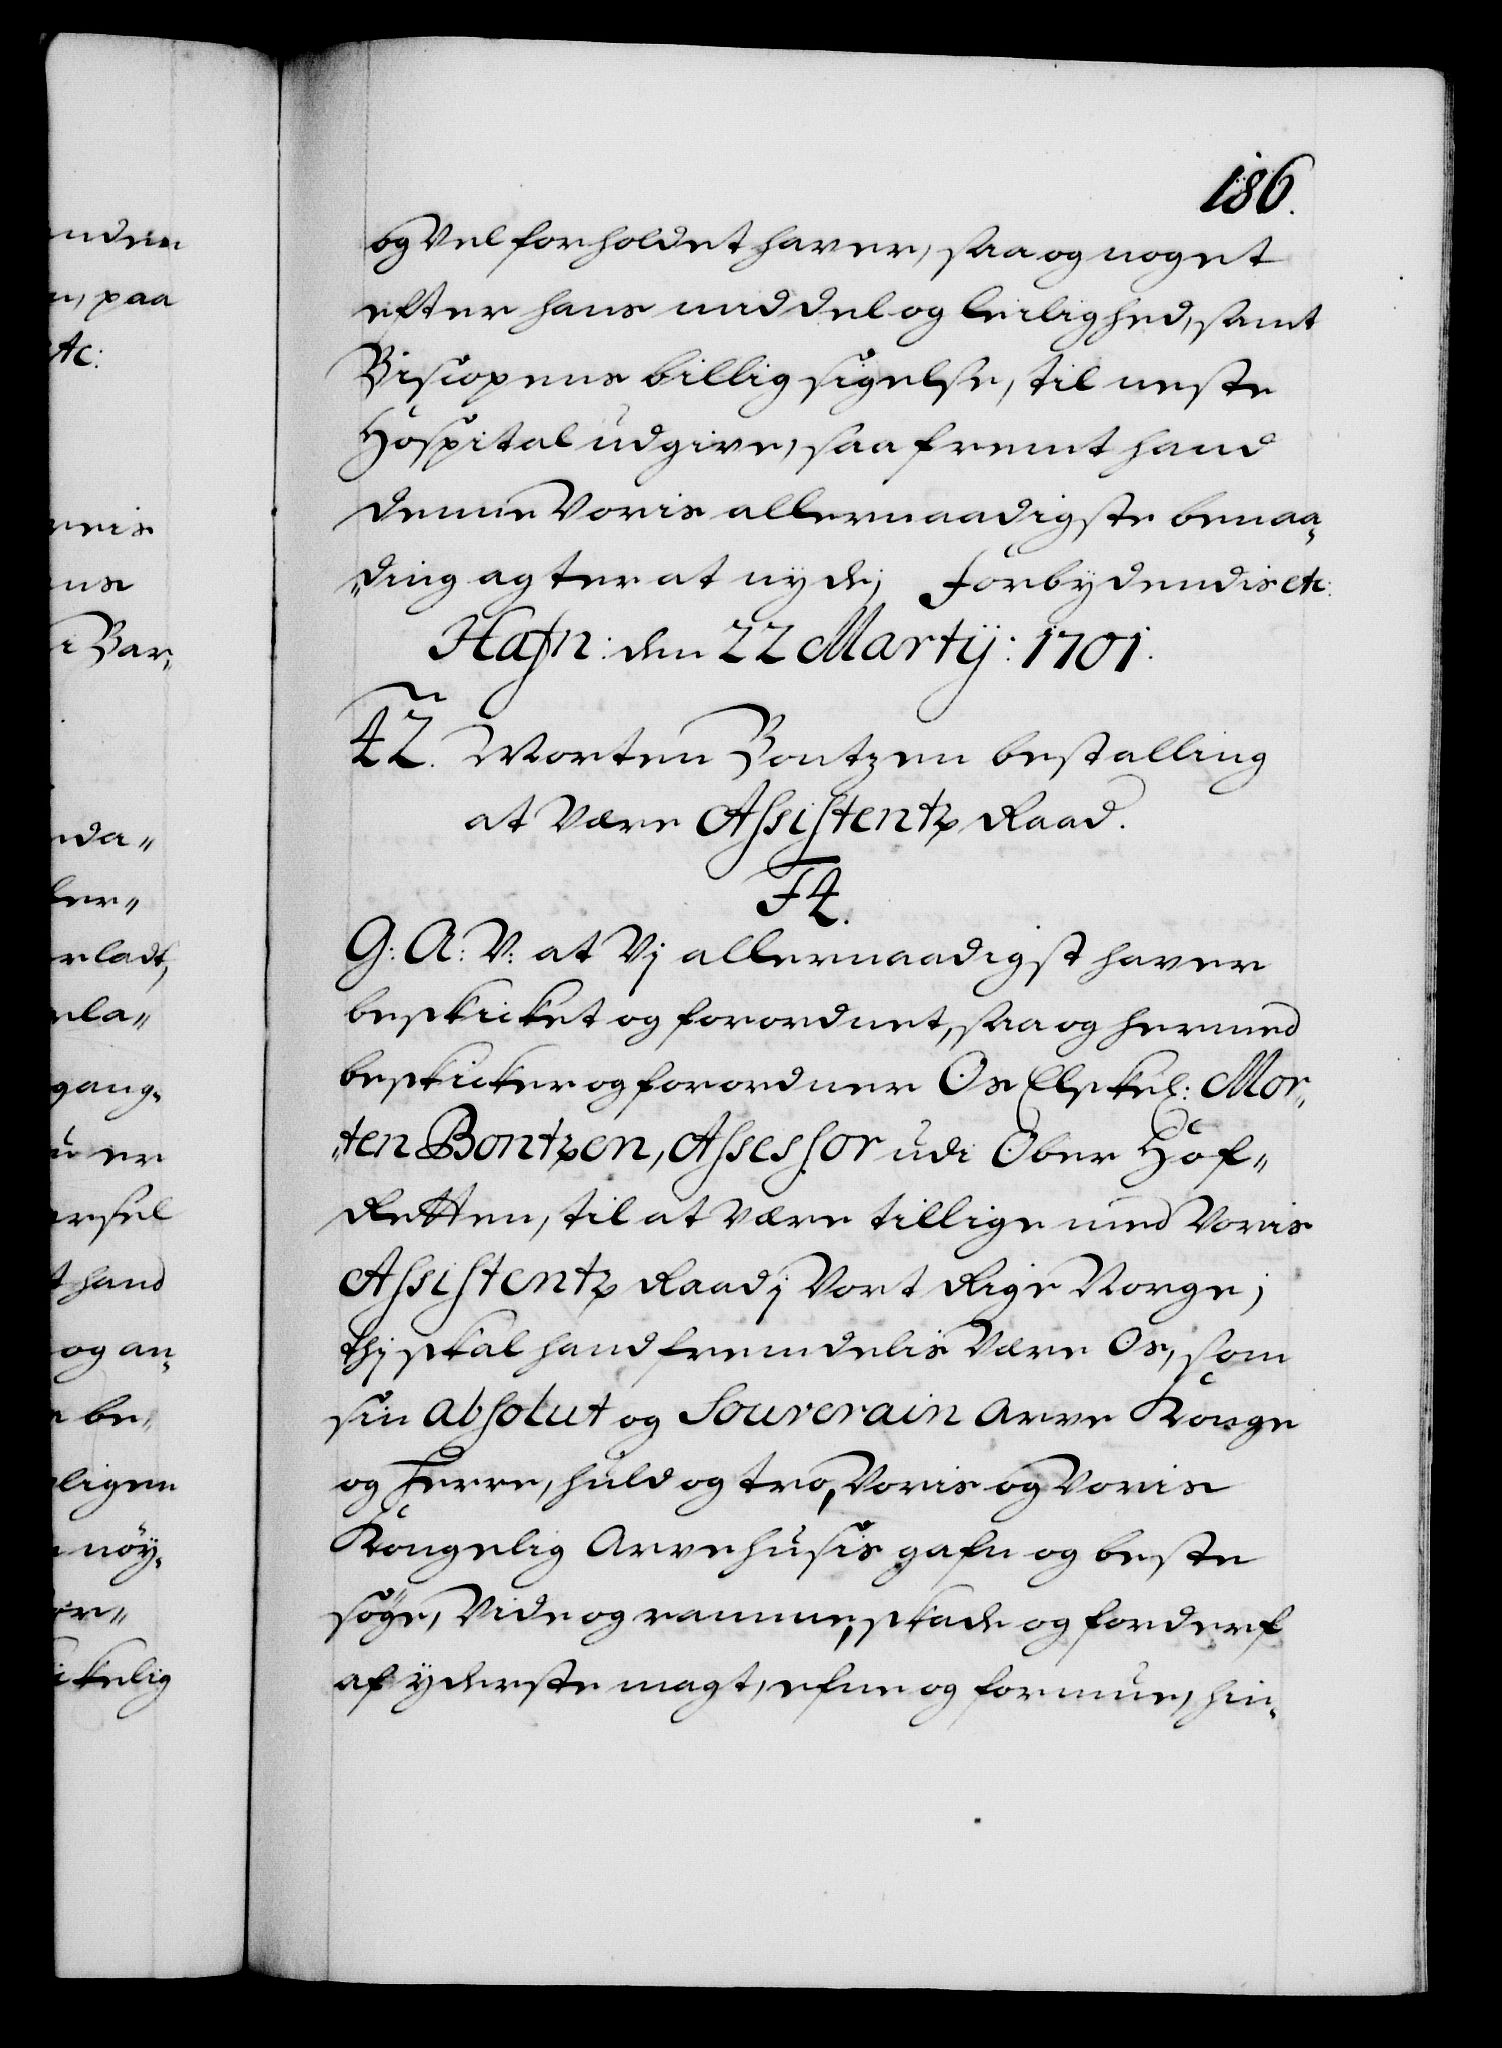 186.
og Vel forholdet haver, saa og noget
efter hans middel og leilighed, samt
Biscopens billig sigelse, til neste
Hospital udgive, saa fremt hand
denne Voris allernaadigste benaa„
„ding agter at nyde; Forbydendis etc:
Hafn: den 22 Martij: 1701.
42. Morten Bontzen bestalling
at være Assistentz Raad.
F4.
G: A: V: at Vj allernaadigst haver
beskicket og forordnet, saa og hermed
beskicker og forordner Os Elskel: Mor„
„ten Bontzen, Assessor udi Ober Hof„
Retten, til at være tillige med Voris
Assistentz Raad j Vort Rige Norge;
thj skal hand fremdelis være Os, som
sin absolut og Souverain Arve Konge
og Herre, huld og tro, Voris og Voris
Kongelig Arvehusis gafn og beste
søge, Vide og ramme, skade og forderf
af yderste magt, efne og formue, hin„
nden
n, paa
etc:
reis
ns
i Bar„
nda„
ler„
rladt,
la„
gang„
u er
rsel
t hand
og an„
be„
ligen
nöy„
er„
ikelig